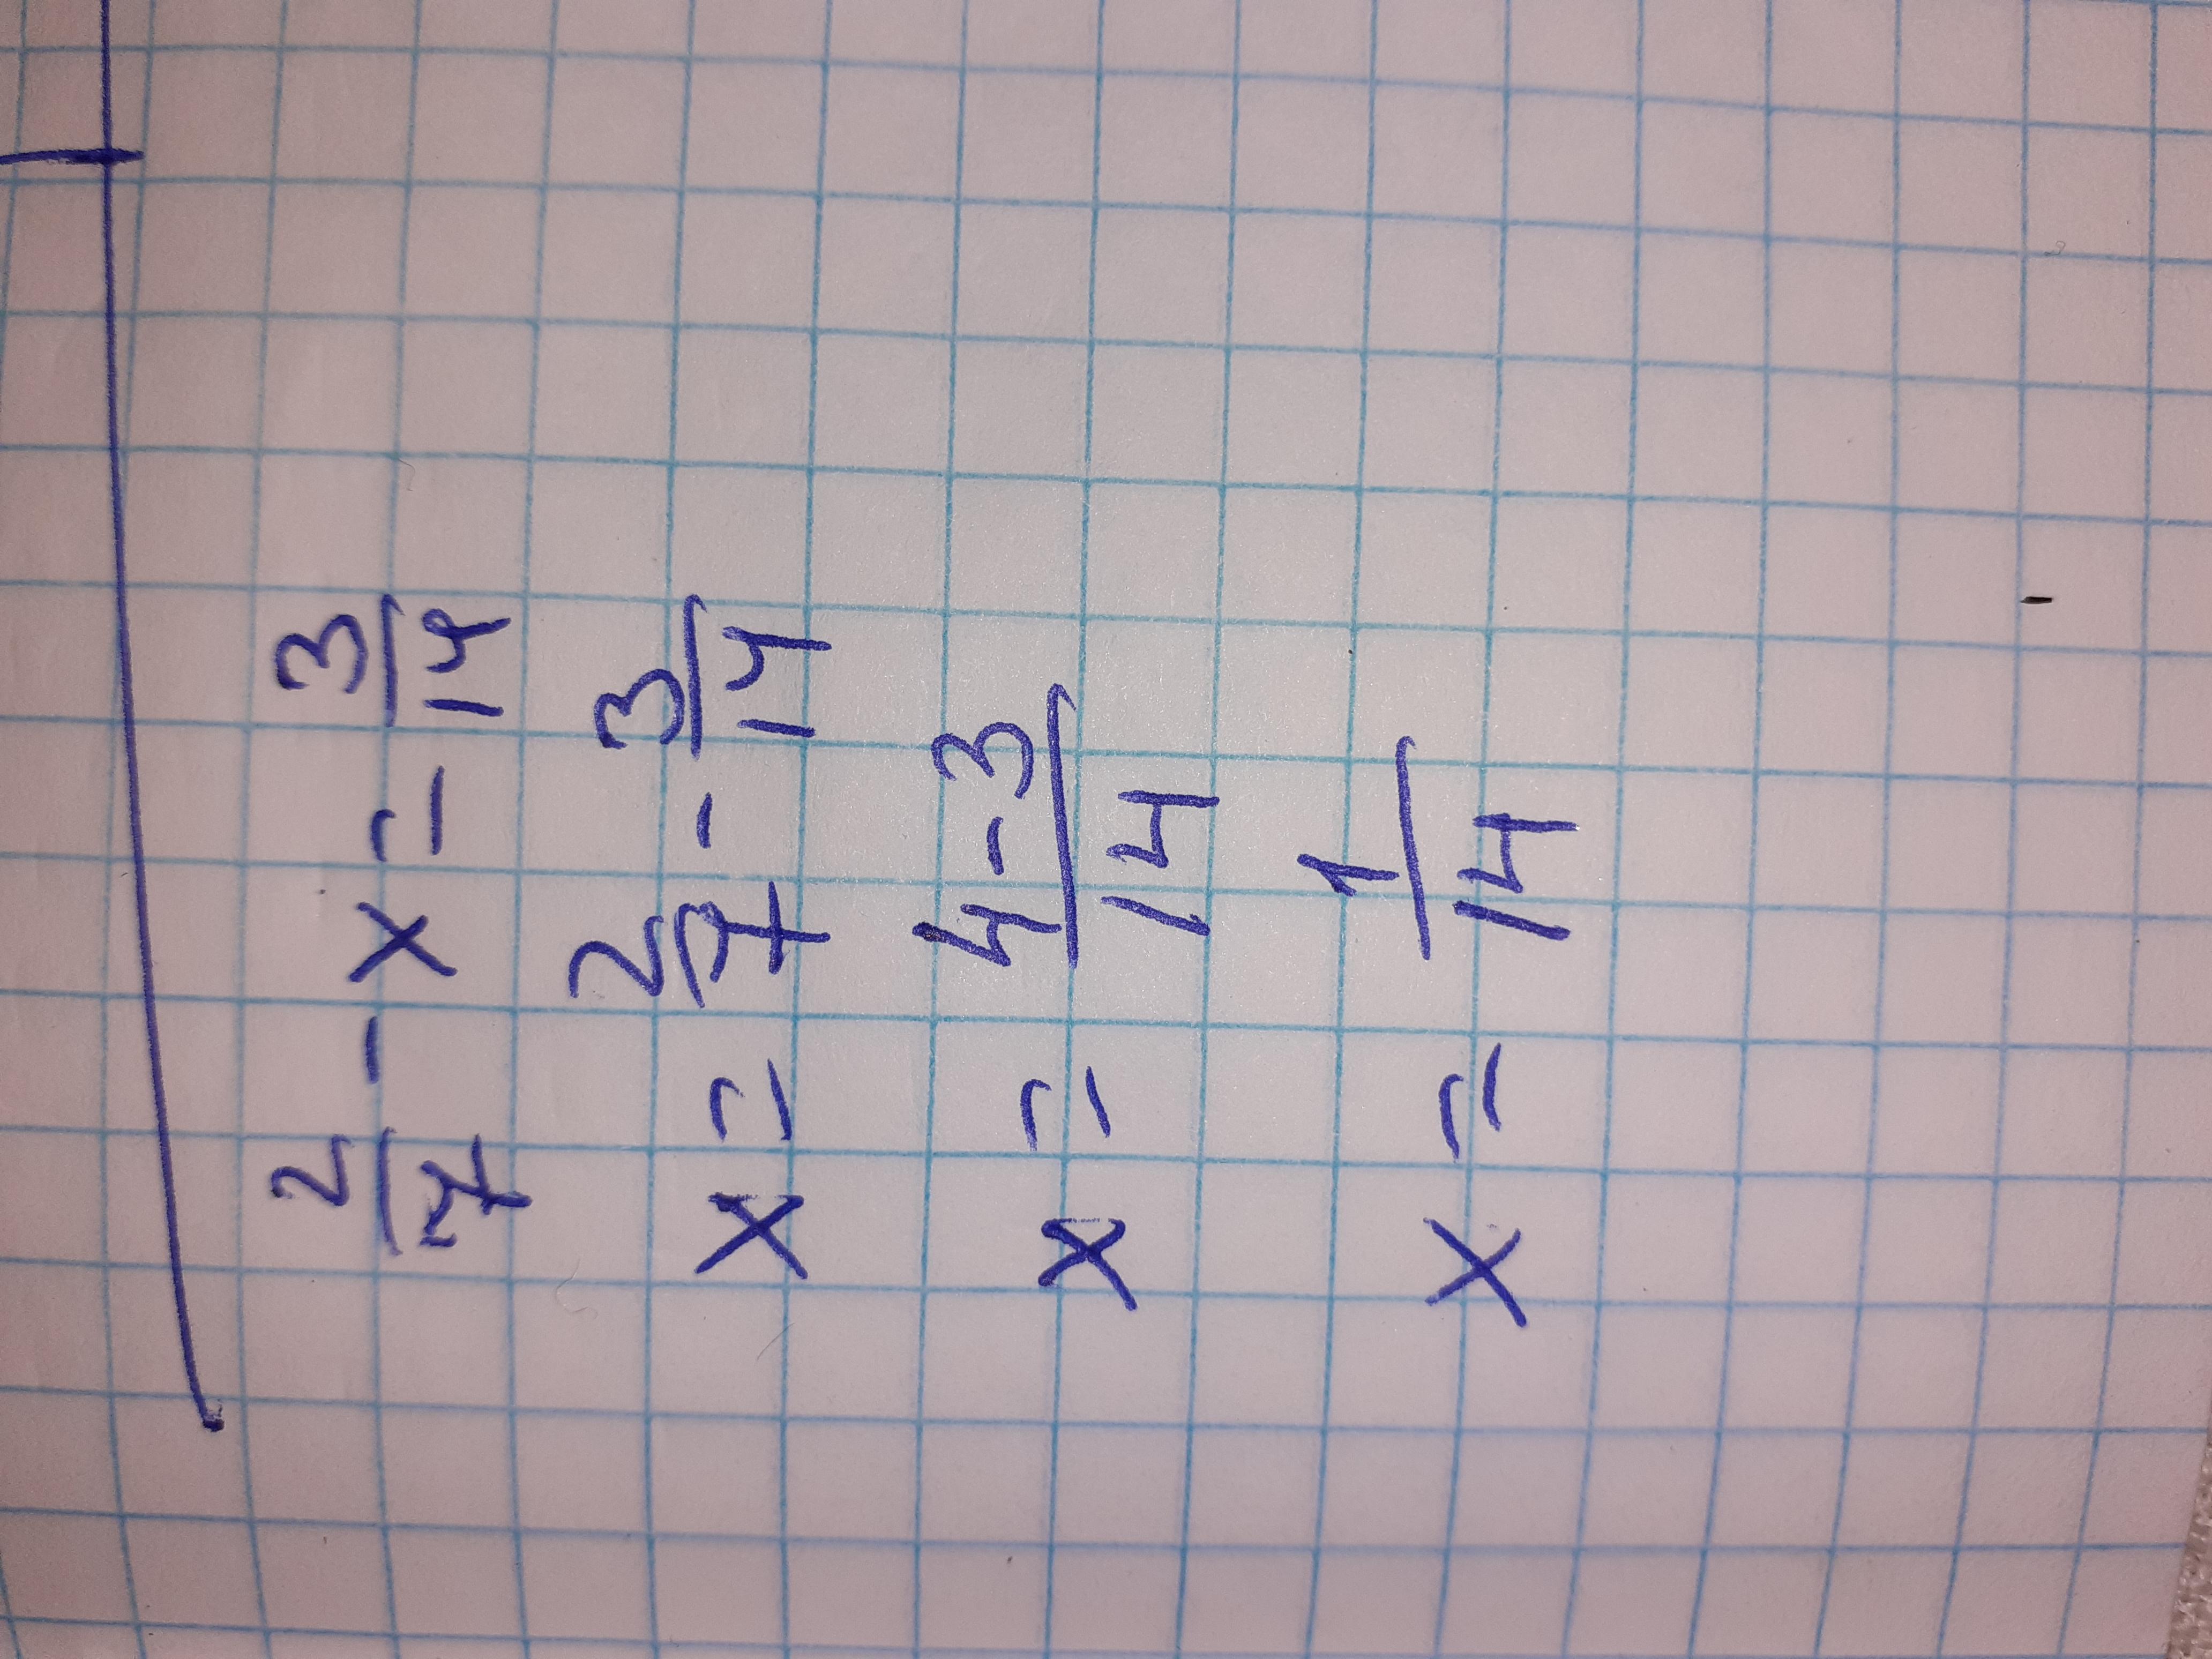 2/7 - x = 3/14
x = 2/7 - 3/14
x = 4-3/14
x = 1/14